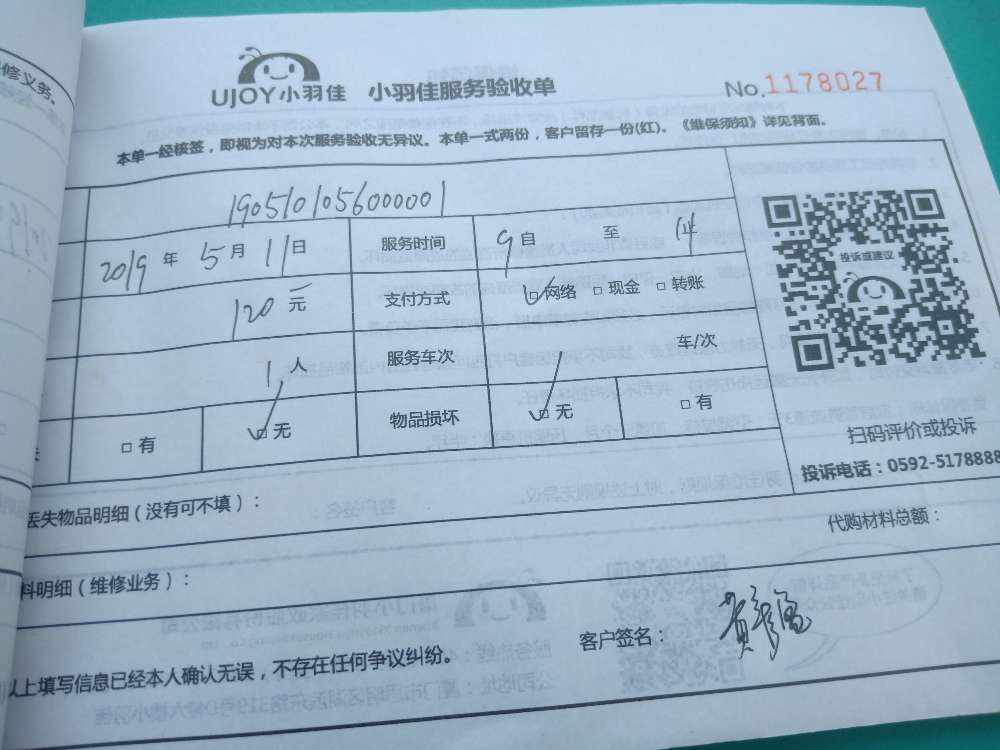 修义务。
UJOY小羽佳 小羽佳服务验收单 No.1178027
本单一经核签,即视为对本次服务验收无异议。本单一式两份,客户留存一份(红)。《维保须知》详见背面。
190510105600001
2019年5月11日 服务时间 9自 至 止
120元 支付方式 ☑网络 □现金 □转账
1人 服务车次 车/次
□有 ☑无 物品损坏 ☑无 □有
投诉或建议
扫码评价或投诉
投诉电话:0592-5178888
丢失物品明细(没有可不填):
代购材料总额:
料明细(维修业务):
客户签名:
以上填写信息已经本人确认无误,不存在任何争议纠纷。